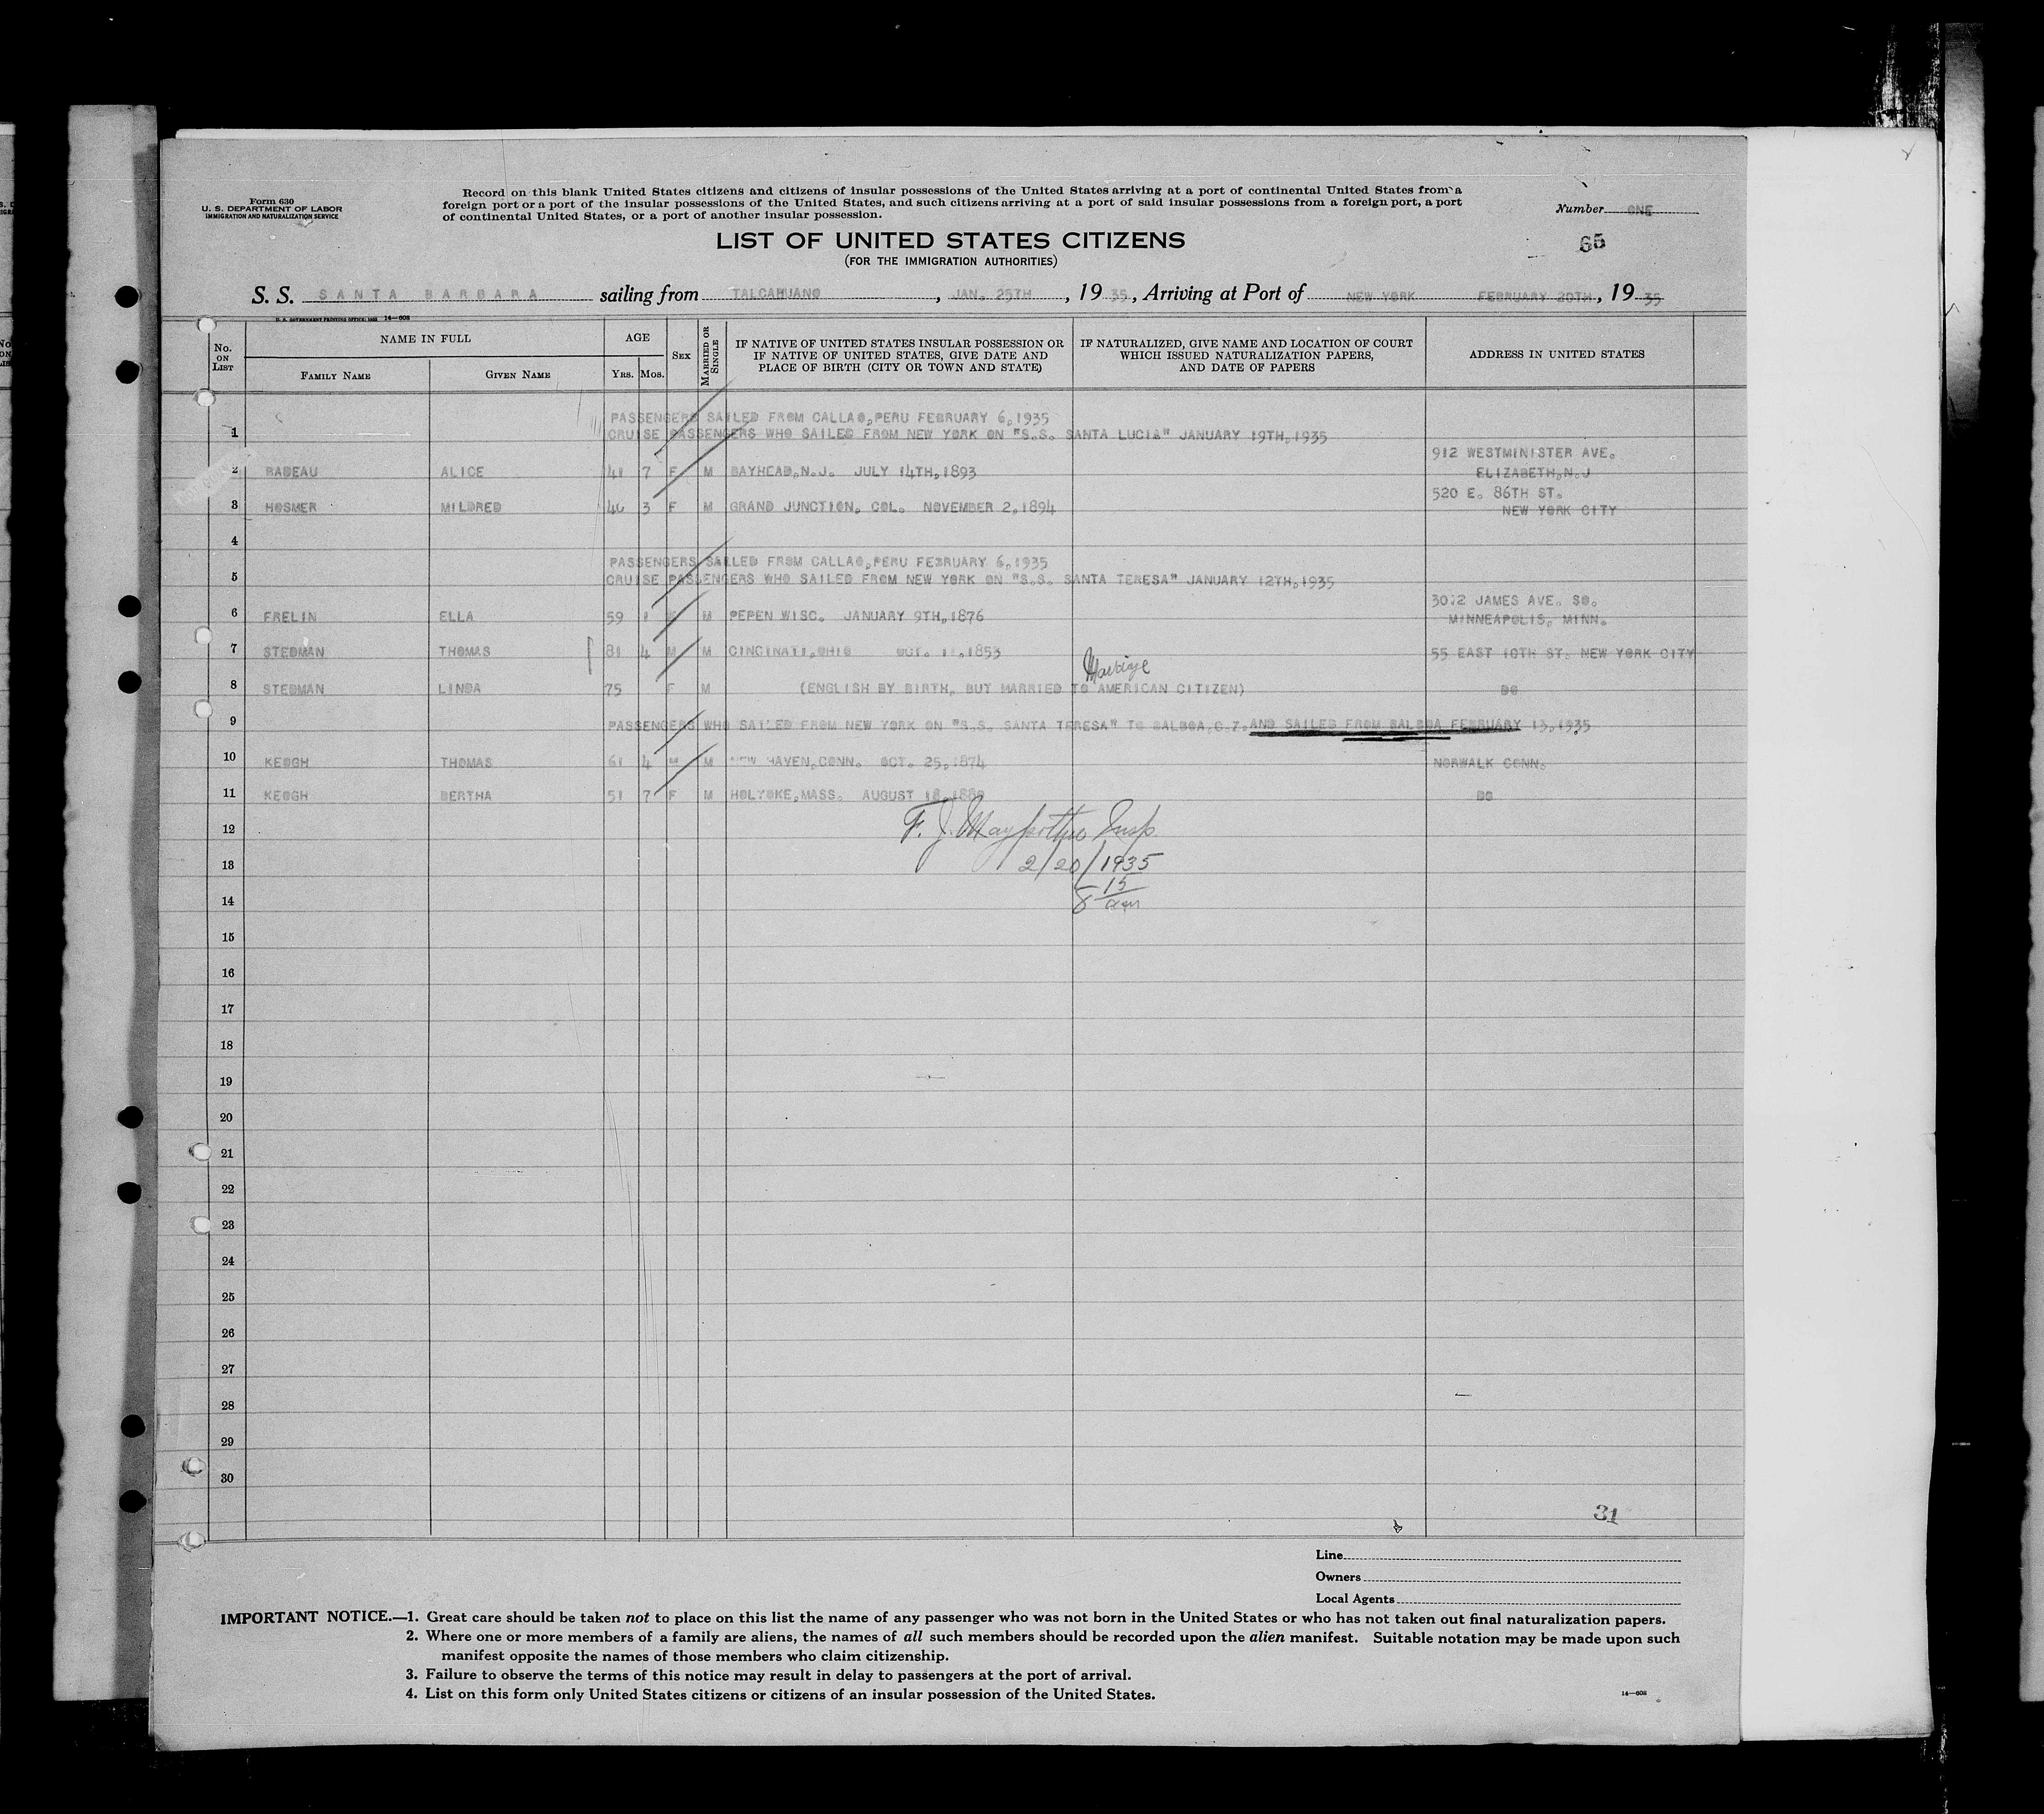 Form 630
U. S. DEPARTMENT OF LABOR
IMMIGRATION AND NATURALIZATION SERVICE
Record on this blank United States citizens and citizens of insular possessions of the United States arriving at a port of continental United States from a
foreign port or a port of the insular possessions of the United States, and such citizens arriving at a port of said insular possessions from a foreign port, a port
of continental United States, or a port of another insular possession.
Number ONE
65
LIST OF UNITED STATES CITIZENS
(FOR THE IMMIGRATION AUTHORITIES)
S. S. SANTA BARBARA sailing from TALCAHUANO, JAN. 25TH, 19 35, Arriving at Port of NEW YORK FEBRUARY 20TH, 19 35
U. S. GOVERNMENT PRINTING OFFICE: 14—608
No. ON LIST
NAME IN FULL
FAMILY NAME
GIVEN NAME
AGE
YRS. MOS.
SEX
MARRIED OR SINGLE
IF NATIVE OF UNITED STATES INSULAR POSSESSION OR
IF NATIVE OF UNITED STATES, GIVE DATE AND
PLACE OF BIRTH (CITY OR TOWN AND STATE)
IF NATURALIZED, GIVE NAME AND LOCATION OF COURT
WHICH ISSUED NATURALIZATION PAPERS,
AND DATE OF PAPERS
ADDRESS IN UNITED STATES
PASSENGERS SAILED FROM CALLAO,PERU FEBRUARY 6,1935
1 CRUISE PASSENGERS WHO SAILED FROM NEW YORK ON "S.S. SANTA LUCIA" JANUARY 19TH,1935
912 WESTMINISTER AVE.
2 BADEAU ALICE 41 7 F M BAYHEAD,N.J. JULY 14TH,1893 ELIZABETH,N.J
520 E. 86TH ST.
3 HOSMER MILDRED 40 3 F M GRAND JUNCTION, COL. NOVEMBER 2,1894 NEW YORK CITY
4
PASSENGERS SAILED FROM CALLAO,PERU FEBRUARY 6,1935
5 CRUISE PASSENGERS WHO SAILED FROM NEW YORK ON "S.S. SANTA TERESA" JANUARY 12TH,1935
3012 JAMES AVE. SO.
6 FRELIN ELLA 59 1 M PEPEN WISC. JANUARY 9TH,1876 MINNEAPOLIS, MINN.
7 STEDMAN THOMAS 81 4 M M CINCINATI,OHIO OCT. 11,1853 55 EAST 10TH ST. NEW YORK CITY
Marriage
8 STEDMAN LINDA 75 F M (ENGLISH BY BIRTH, BUT MARRIED TO AMERICAN CITIZEN) DO
9 PASSENGERS WHO SAILED FROM NEW YORK ON "S.S. SANTA TERESA" TO BALBOA,C.Z. AND SAILED FROM BALBOA FEBRUARY 13,1935
10 KEOGH THOMAS 61 4 M M NEW HAVEN,CONN. OCT. 25,1874 NORWALK CONN.
11 KEOGH BERTHA 51 7 F M HOLYOKE,MASS. AUGUST 18, DO
12 F. J. Insp
13 2/20/1935
14 8 15 am
15
16
17
18
19
20
21
22
23
24
25
26
27
28
29
30
31
Line
Owners
Local Agents
IMPORTANT NOTICE.—1. Great care should be taken not to place on this list the name of any passenger who was not born in the United States or who has not taken out final naturalization papers.
2. Where one or more members of a family are aliens, the names of all such members should be recorded upon the alien manifest. Suitable notation may be made upon such
manifest opposite the names of those members who claim citizenship.
3. Failure to observe the terms of this notice may result in delay to passengers at the port of arrival.
4. List on this form only United States citizens or citizens of an insular possession of the United States.
14—608